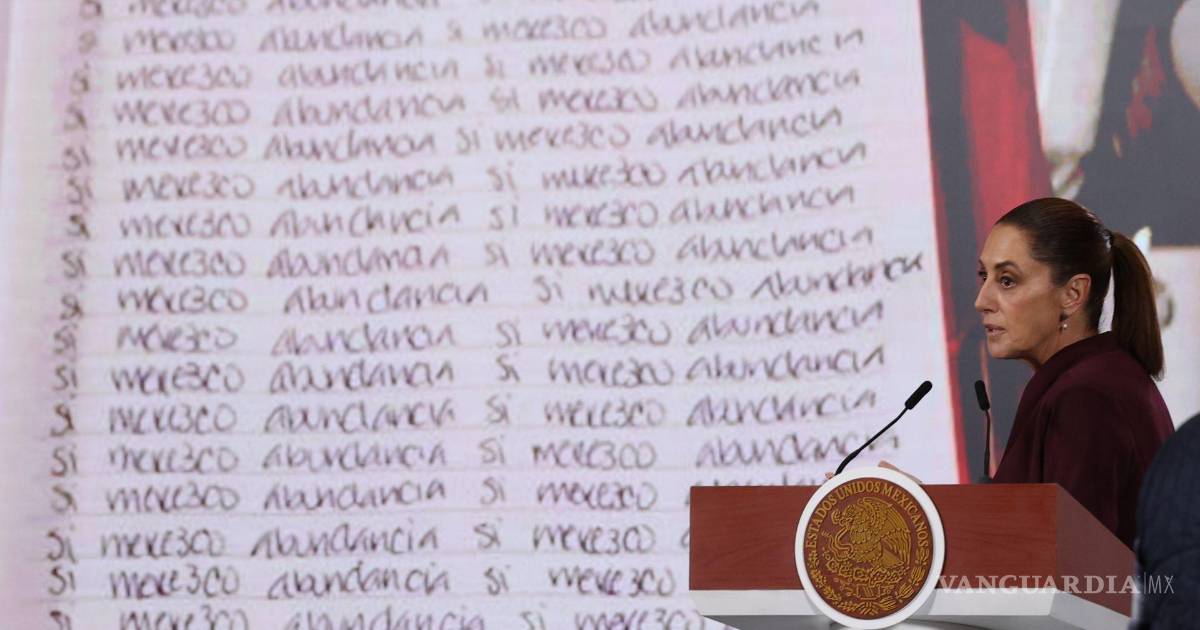 Si merezco abundancia
Si merezco abundancia Si merezco abundancia
Si merezco abundancia Si merezco abundancia
Si merezco abundancia Si merezco abundancia
Si merezco abundancia Si merezco abundancia
Si merezco abundancia Si merezco abundancia
Si merezco abundancia Si merezco abundancia
Si merezco abundancia Si merezco abundancia
Si merezco abundancia Si merezco abundancia
Si merezco abundancia Si merezco abundancia
Si merezco abundancia Si merezco abundancia
Si merezco abundancia Si merezco abundancia
Si merezco abundancia Si merezco abundancia
Si merezco abundancia Si merezco
Si merezco abundancia Si merezco
Si merezco abundancia Si merezco
Si merezco abundancia Si merezco
ESTADOS UNIDOS MEXICANOS
VANGUARDIA|MX